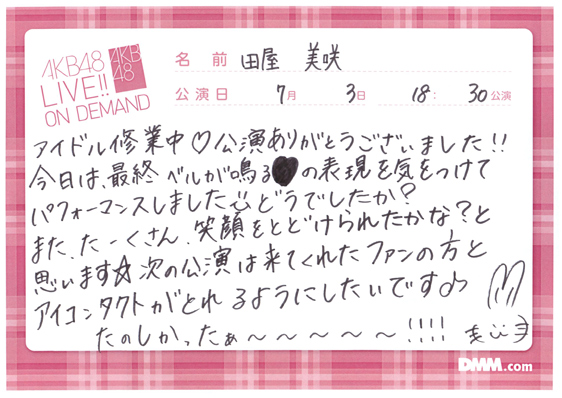 AKB48
LIVE!!
ON DEMAND
AKB
48
名前 田屋 美咲
公演日 7月 3日 18:30公演
アイドル修業中♡公演ありがとうございました!!
今日は、最終ベルが鳴る♥の表現を気をつけて
パフォーマンスしました どうでしたか?
また、たーくさん、笑顔をとどけられたかな?と
思います☆次の公演は来てくれたファンの方と
アイコンタクトがとれるようにしたいです♪
たのしかったぁ〜〜〜〜〜!!!!
DMM.com